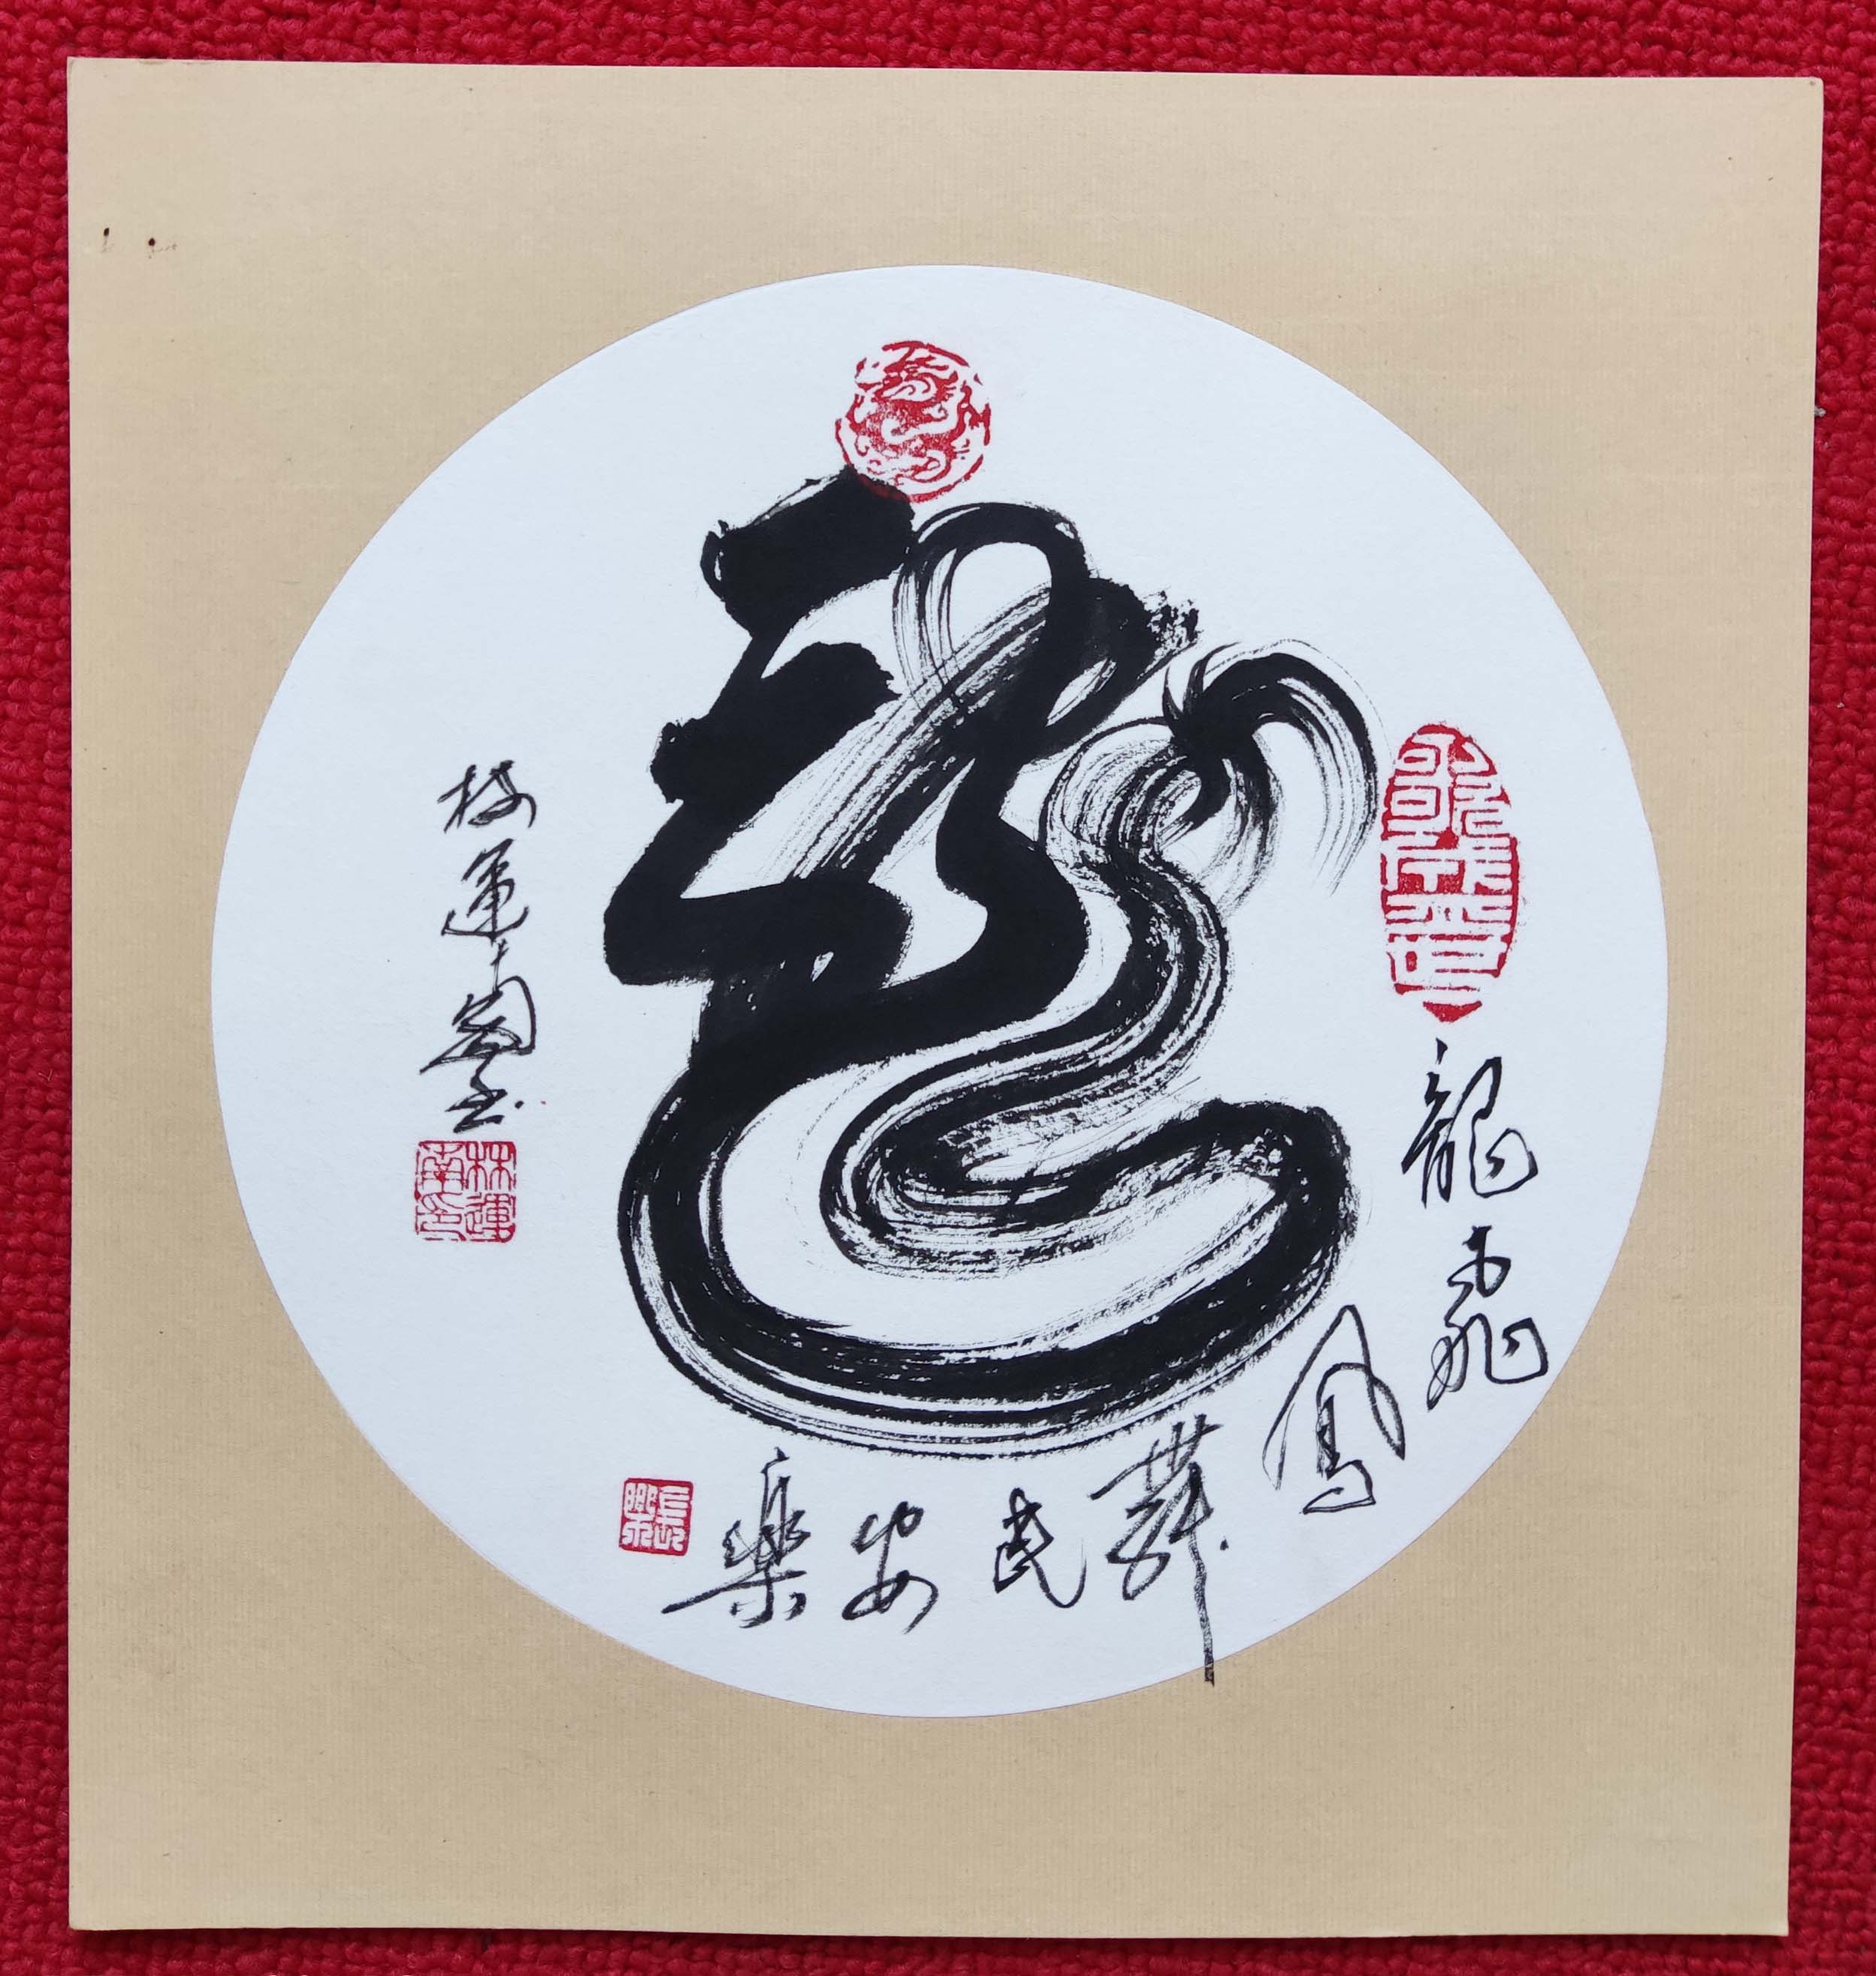 龍
龍飛鳳舞民安樂
長樂
林運南書
林運南印